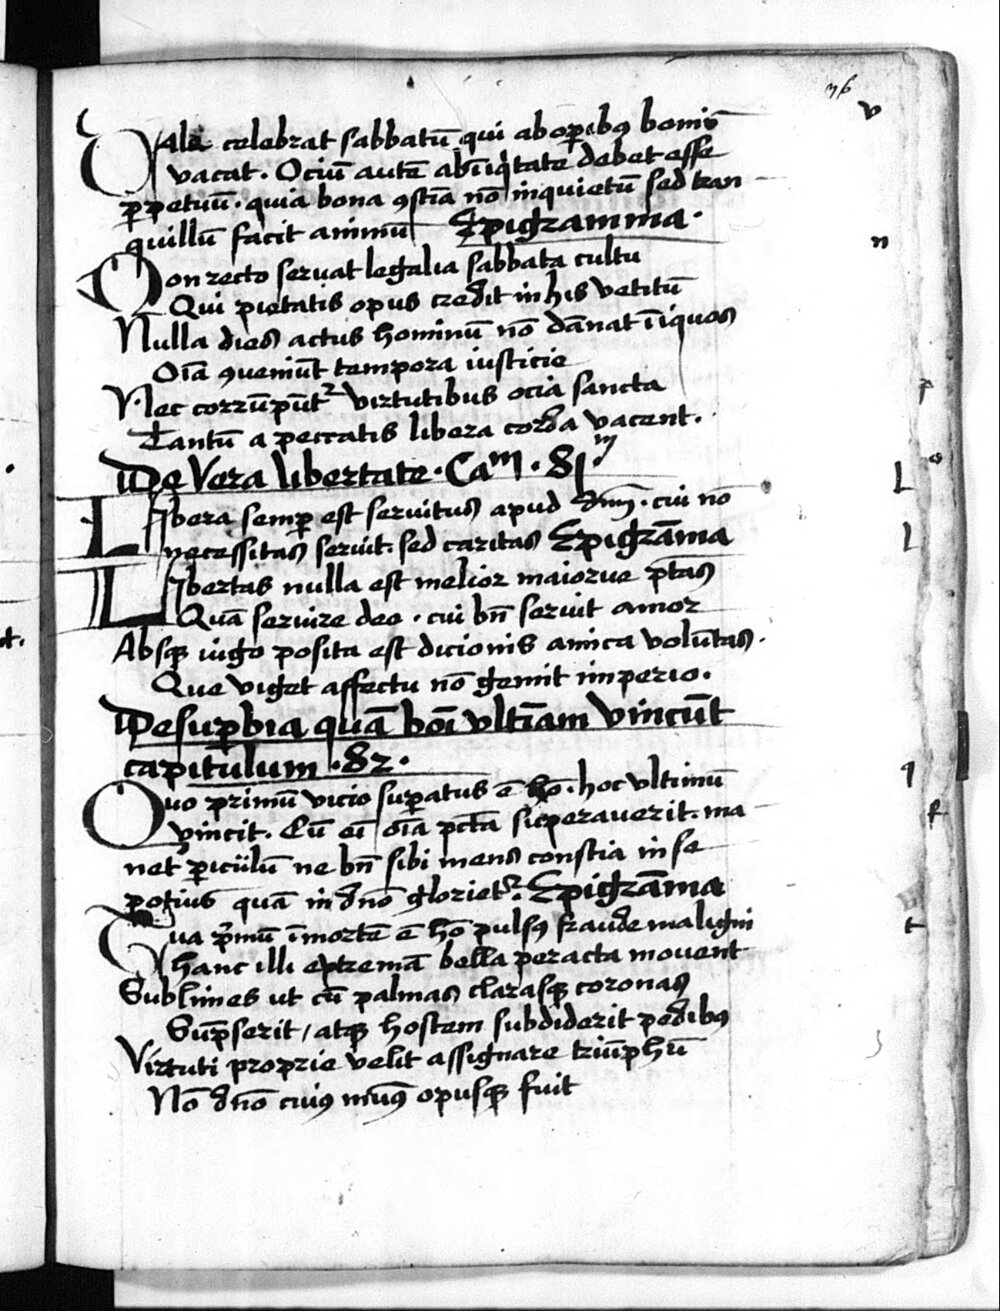 76
Vale celebrat sabbatū qui ab opibꝰ bonis
vacat. Ociū autē ab iniq̇tate debet esse
ꝑpetuū. quia bona ꝯstīa nō inquietū sed tran
quillū facit animū Epigramma.
Non recto seruat legalia sabbata cultu
Qui pietatis opus credit in his vetitū
Nulla dies actus hominū nō dānat īiquos
Oīa ꝯueniūt tempora iusticie
Nec corrūpūtᷣ virtutibus ocia sancta
Tantū a peccatis libera corda vacent.
De Vera libertate. Caᵐ. 81ᵐ
Libera semꝑ est seruitus apud dnm̄. cui nō
necessitas seruit. sed caritas Epigrāma
Libertas nulla est melior maiorue p̄tas
Quā seruire deo. cui bn̄ seruit amor
Absqꝫ iugo posita est dicionis amica volūtas.
Que viget affectu nō gemit imperio.
De suꝑbia quā boī vltīam vincūt
capitulum. 82.
Quo primū vicio suꝑatus ē hō. hoc vltimū
vincit. Cū eī oīa pctā superauerit. ma
netᷣ ꝑiculū ne bn̄ sibi mens constia in se
potius quā in dn̄o glorietᷣ. Epigrāma
Qua p̄mū ī mortē ē hō pulsꝰ fraude maligni
hanc illi extremā bella peracta mouent
Sublimes ut cū palmas clarasqꝫ coronas
Sūpserit / atqꝫ hostem subdiderit pedibꝰ
Virtuti proprie velit assignare triūphū
Nō dn̄o cuiꝰ munꝰ opusqꝫ fuit